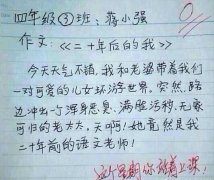 四年级③班：蒋小强
0
作文：《二十年后的我》
今天天气不错，我和老婆带着我们
一对可爱的儿女环游世界，突然，路
边冲出一个浑身恶臭、满脸污秽、无家
可归的老太太，天啊！她竟然是我
二十年前的语文老师！
这个星期你站着上课！